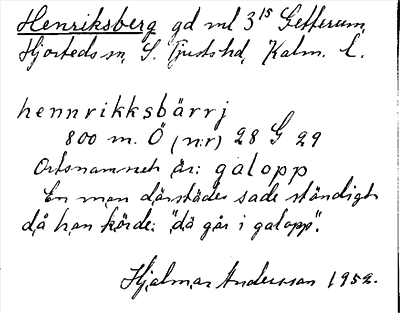 Henriksberg gd ml 3¹⁵ Getterum,
Hjorteds sn, S. Tjusts hd, Kalm. l.
hennrikksbärrj
800 m. Ö (n:r) 28 G 29
Ortsnamnet är: galopp
En man därstädes sade ständigt
då han körde: "dä går i galopp".
Hjalmar Andersson 1952.